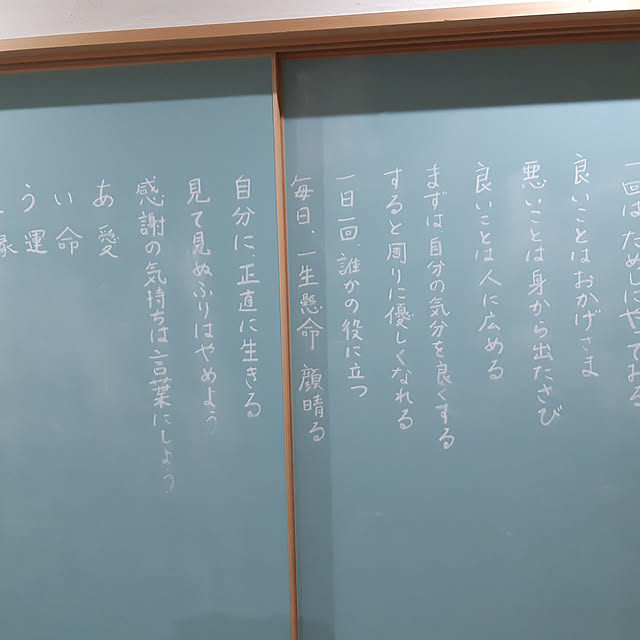 一回はためしにやってみる
良いことはおかげさま
悪いことは身から出たさび
良いことは人に広める
まずは自分の気分を良くする
すると周りに優しくなれる
一日一回、誰かの役に立つ
毎日、一生懸命 顔晴る
自分に、正直に生きる
見て見ぬふりはやめよう
感謝の気持ちは言葉にしよう
あ 愛
い 命
う 運